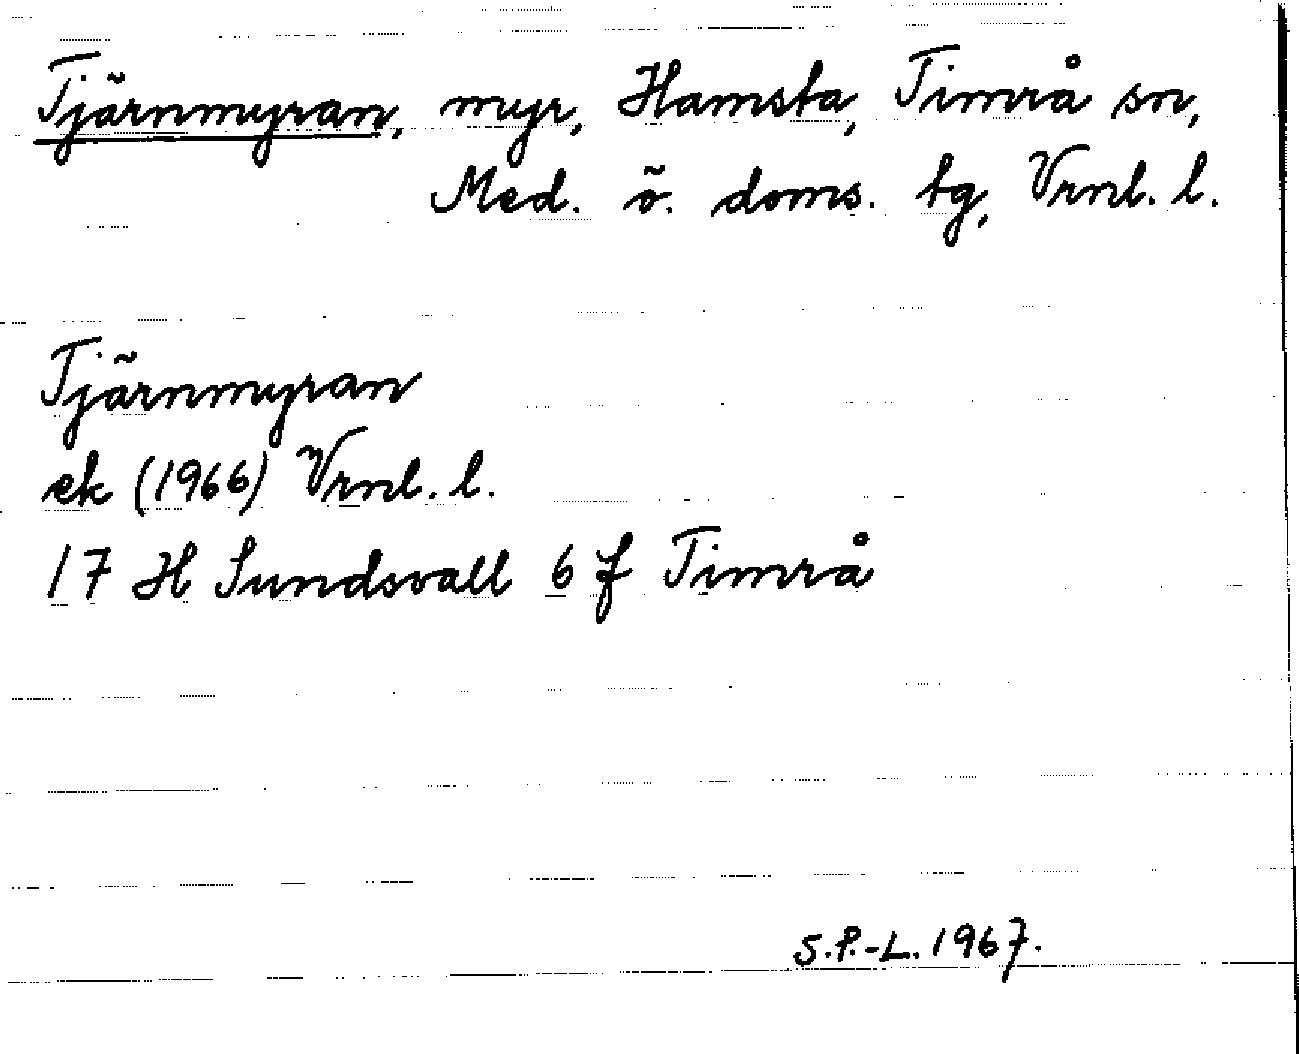 Tjärnmyran, myr, Hamsta, Timrå sn,
Med. ö. doms. tg, Vrnl. l.
Tjärnmyran
ek (1966) Vrnl. l.
17 H Sundsvall 6 f Timrå
S.P.-L. 1967.